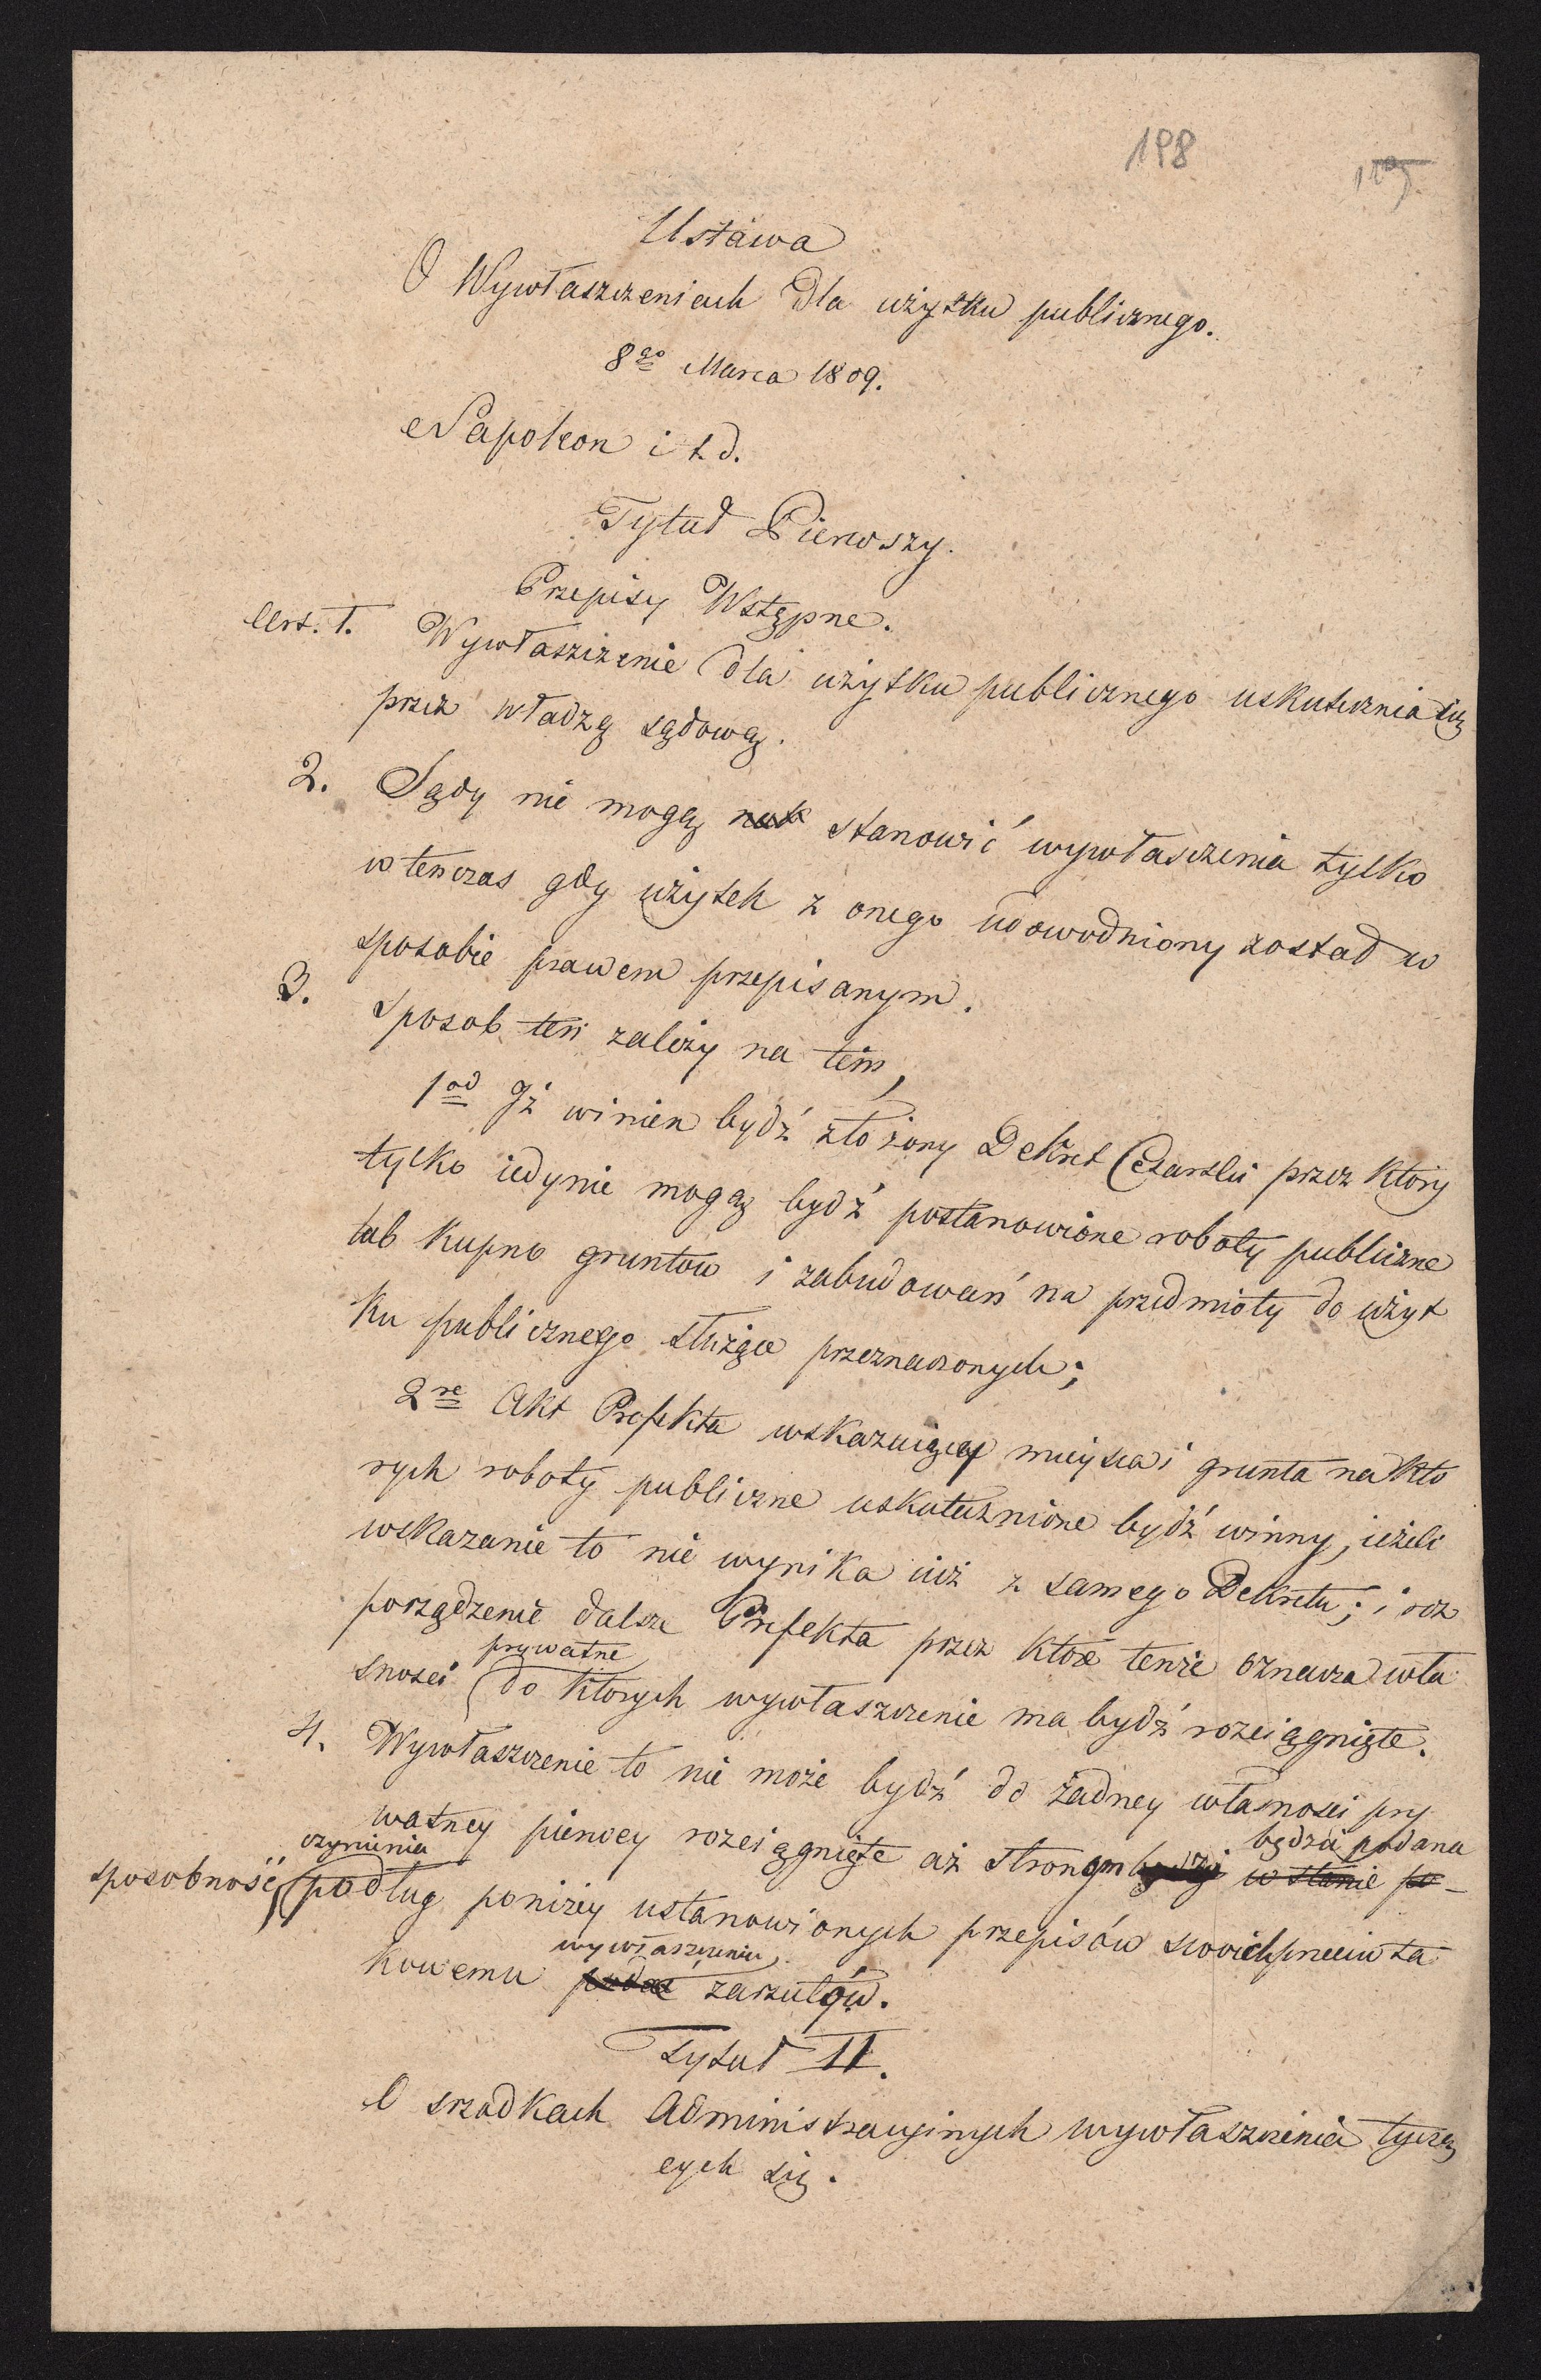 198
Ustawa
O Wywłaszczeniach dla użytku publicznego.
8go Marca 1809.
Napoleon i t. d.
Tytuł Pierwszy.
Przepisy Wstępne.
Art. 1. Wywłaszczenie dla użytku publicznego uskutecznia się
przez władzę sądową.
2. Sądy nie mogą stanowić wywłaszczenia tylko
w tenczas gdy użytek z onego udowodniony został w
sposobie prawem przepisanym.
3. Sposob ten zależy na tem,
1od Iż winien bydź złożony Dekret Cesarski przez który
tylko iedynie mogą bydź postanowione roboty publiczne
lub kupno gruntow i zabudowań na przedmioty do użyt
ku publicznego służące przeznaczonych;
2re Akt Prefekta wskazuiący mieysca i grunta na kto
rych roboty publiczne uskutecznione bydź winny, ieżeli
wskazanie to nie wynika iuż z samego Dekretu; i roz
porządzenie dalsze Prefekta przez które tenże oznacza wła
prywatne
snosci do ktorych wywłaszczenie ma bydź rozciągnięte.
4. Wywłaszczenie to nie może bydź do żadney własnosci pry
watney pierwey rozciągnięte aż stronom w stanie po-
będzie podana
sposobność czynienia
podług poniżey ustanowionych przepisów swoich przeciw ta
wywłaszczeniu
kowemu podać zarzutów.
Tytuł II.
O srzodkach Administracyinych wywłaszczenia tyczą
cych się.